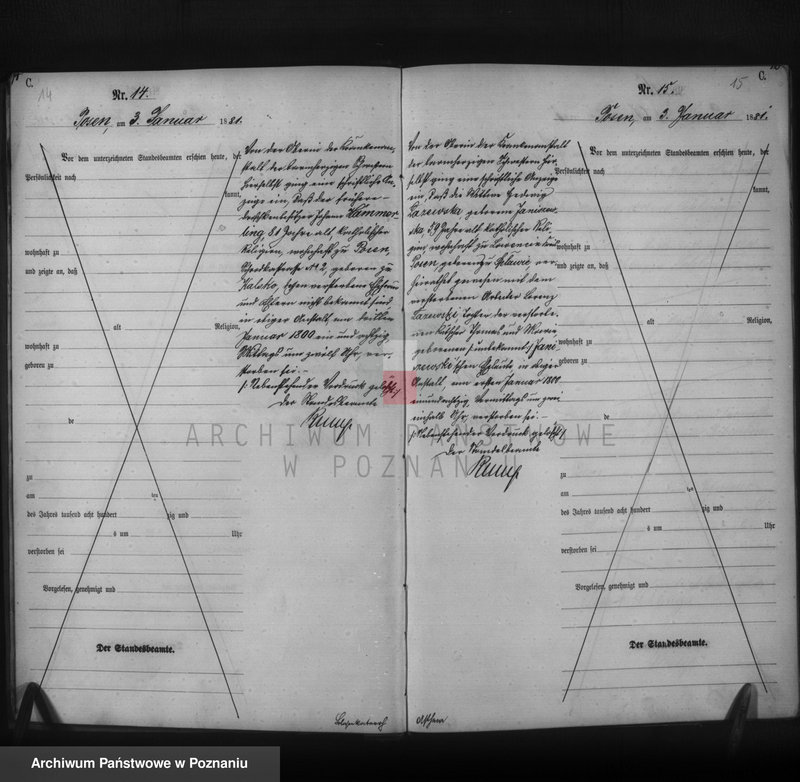 C.
14
Nr. 14.
Posen, am 3. Januar 1881.
Vor dem unterzeichneten Standesbeamten erschien heute, der
Persönlichkeit nach
kannt,
wohnhaft zu
und zeigte an, daß
alt Religion,
wohnhaft zu
geboren zu
de
zu
am ten
des Jahres tausend acht hundert zig und
s um Uhr
verstorben sei
Vorgelesen, genehmigt und
Der Standesbeamte.
Von der Oberin der Kranken-
stalt der barmherzigen Schwestern
hierselbst ging eine schriftliche An-
zeige ein, daß der frühere
Johann Hammer-
ling 81 Jahre alt, katholischer
Religion, wohnhaft zu Posen,
geboren zu
verstorbene
und Eltern nicht bekannt sind
in obiger Anstalt, am dritten
Januar 1800 ein und achtzig
Mittags um zwölf Uhr, ver-
storben sei.
Nebenstehender Vordruck gelöscht
Der Standesbeamte
Rump
15
C.
Nr. 15.
Posen, am 3. Januar 1881.
Von der Oberin der Krankenanstalt
der barmherzigen Schwestern hier-
selbst ging eine schriftliche Anzeige
ein, daß die Wittwe Hedwig
geborene
59 Jahre alt katholischer Reli-
gion, wohnhaft zu
Posen, geboren zu ver-
heirathet gewesen mit dem
verstorbenen Arbeiter Lorenz
Tochter der verstorbe-
nen Thomas und
geborenen unbekannt
Eheleute, in obiger
Anstalt, am ersten Januar 1800
einundachtzig Vormittags um zwei
einhalb Uhr, verstorben sei.
Nebenstehender Vordruck gelöscht
Der Standesbeamte
Rump
Vor dem unterzeichneten Standesbeamten erschien heute, der
Persönlichkeit nach
kannt,
wohnhaft zu
und zeigte an, daß
alt Religion,
wohnhaft zu
geboren zu
de
zu
am ten
des Jahres tausend acht hundert zig und
s um Uhr
verstorben sei
Vorgelesen, genehmigt und
Der Standesbeamte.
ARCHIWUM PAŃSTWOWE
W POZNANIU
Archiwum Państwowe w Poznaniu